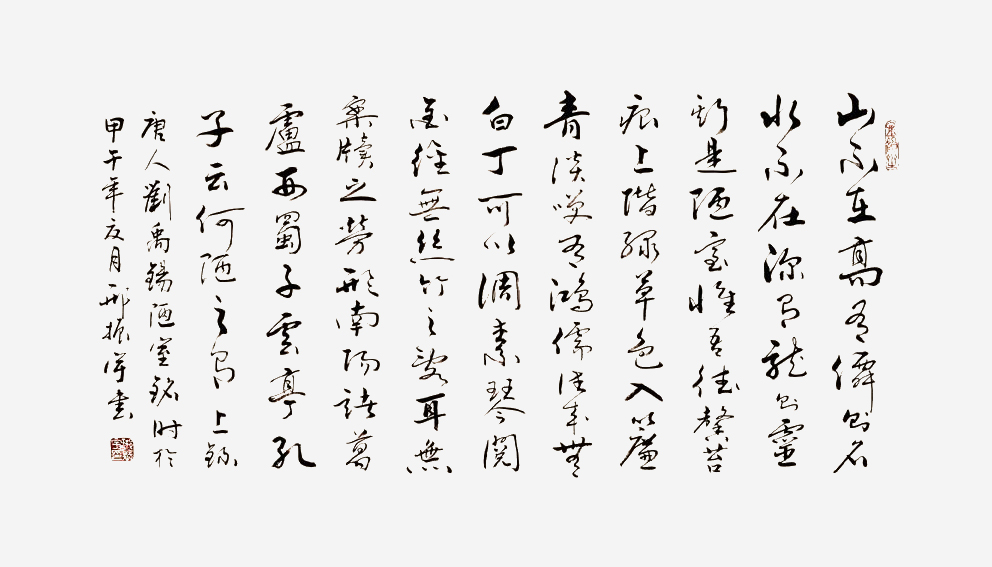 山不在高有僊則名
水不在深有龍則靈
斯是陋室惟吾德馨苔
痕上階綠草色入簾
青談笑有鴻儒往來無
白丁可以調素琴閱
金經無絲竹之亂耳無
案牘之勞形南陽諸葛
廬西蜀子雲亭孔
子云何陋之有上錄
唐人劉禹錫陋室銘時於
甲午年夏月邢振書